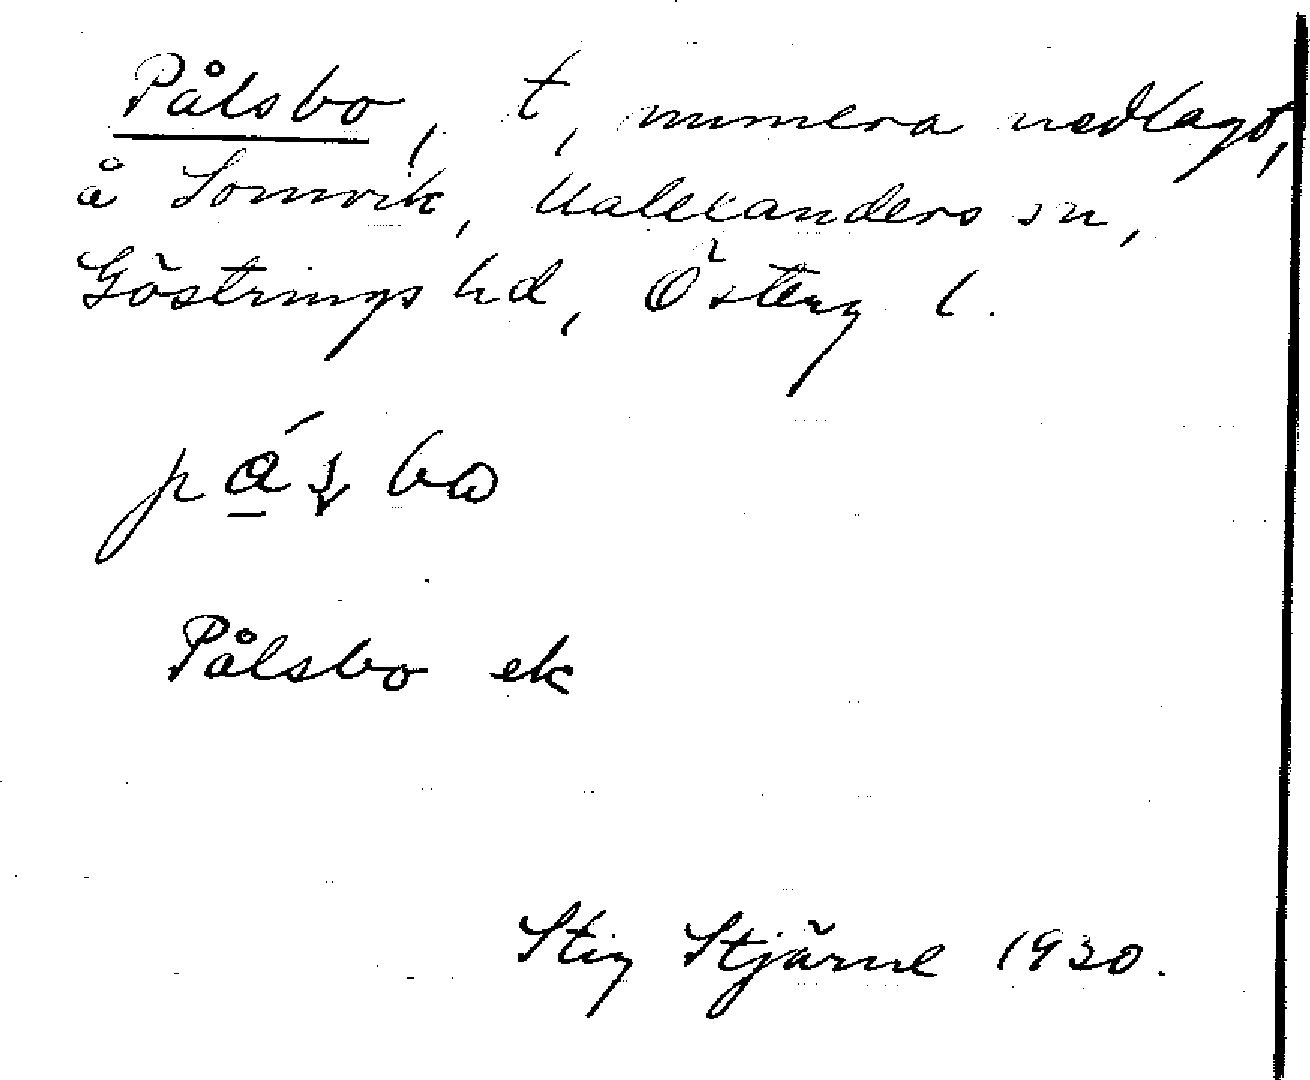 Pålsbo, t, numera nedlagt,
å Somvik, V. Alexanders sn,
Göstrings hd, Österg l.
Pålsbo ek
Stig Stjärne 1930.